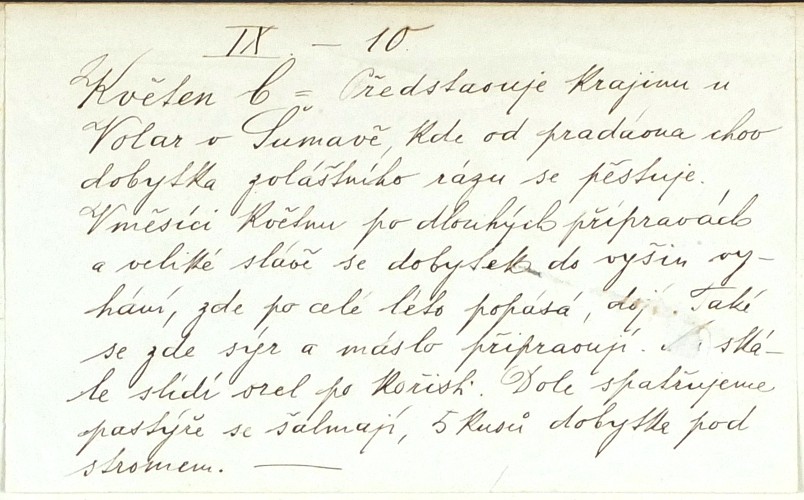 IX. - 10.
Květen b = Představuje krajinu u
Volar v Šumavě, kde od pradávna chov
dobytka zvláštního rázu se pěstuje.
V měsíci květnu po dlouhých přípravách
a veliké slávě se dobytek do výšin vy-
hání, zde po celé léto popásá, dojí. Také
se zde sýr a máslo připravují. ská-
le slídí orel po kořisti. Dole spatřujeme
pastýře se šalmají, 5 kusů dobytka pod
stromem. —